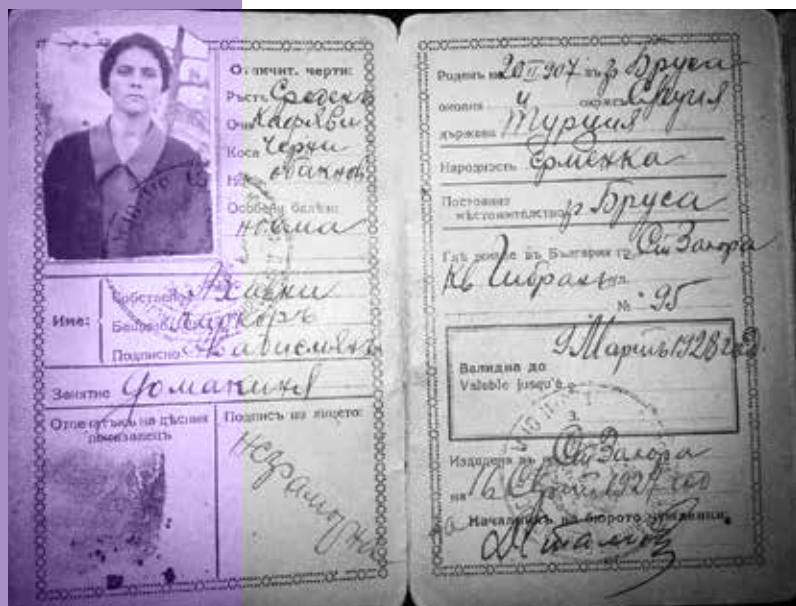 Отличит. черти:
Ръстъ Срѣденъ
Очи Кафяви
Коса Черни
обикнов.
Особени бѣлѣзи:
нѣма
Име:
Собствено
Бащино
Подписно
Занятие домакиня
Отпечатъкъ на дѣсния
показалецъ
Подпись на лицето:
неграмотна
Роденъ на 20 II 907 въ гр Бруса
околия и окрѫгъ Срция
държава Турция
Народность Ерменка
Постоянно
мѣстожителство гр Бруса
Гдѣ живѣе въ България гр. Ст Загора
кв ул.
№ 95
Валидна до 9 Мартъ 1928 год.
Valeble jusqu'à
Издадена въ Ст Загора
на 16 1927 год
Началникъ на бюрото чужденци: